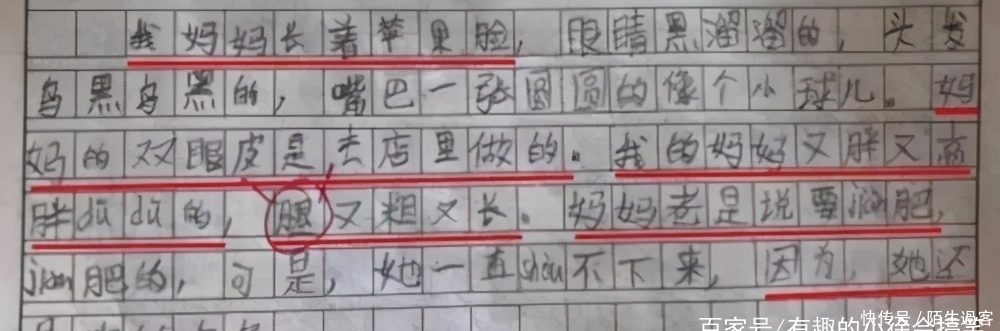 我妈妈长着苹果脸，眼睛黑溜溜的，头发
乌黑乌黑的，嘴巴一张圆圆的像个小球儿。妈
妈的双眼皮是去店里做的。我的妈妈又胖又高
胖dū dū的，腿又粗又长。妈妈老是说要jiǎn肥，
jiǎn肥的，可是，她一直shòu不下来，因为，她还
快传号/陌生过客
百家号/有趣的小往合搞笑